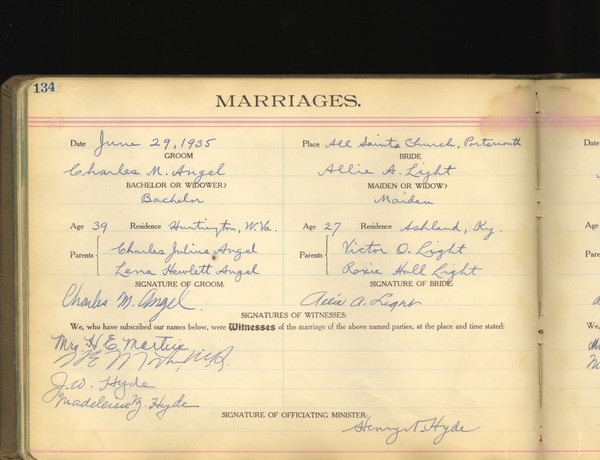 134
MARRIAGES.
Date June 29, 1935 Place All Saints Church, Portsmouth Date
GROOM BRIDE
Charles M. Angel Allie A. Light
BACHELOR OR WIDOWER? MAIDEN OR WIDOW?
Bachelor Maiden
Age 39 Residence Huntington, W. Va. Age 27 Residence Ashland, Ky. Age
Parents Charles Julius Angel Parents Victor O. Light
Lena Hewlett Angel Roxie Hall Light
SIGNATURE OF GROOM: SIGNATURE OF BRIDE
Charles M. Angel. Allie A. Light
SIGNATURES OF WITNESSES:
We, who have subscribed our names below, were Witnesses of the marriage of the above named parties, at the place and time stated: We,
Mrs. H E Martin
J. W. Hyde
Madeleine Hyde
SIGNATURE OF OFFICIATING MINISTER:
Henry N. Hyde